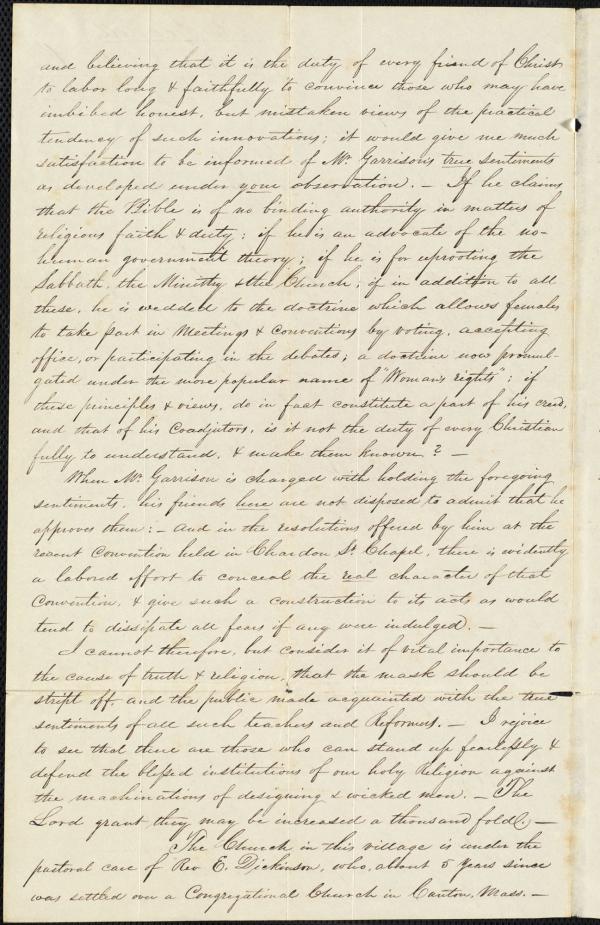 and believing that it is the duty of every friend of Christ
to labor long & faithfully to convince those who may have
imbibed honest, but mistaken views of the practical
tendency of such innovations; it would give me much
satisfaction to be informed of Mr. Garrison's true sentiments
as developed under your observation. — If he claims
that the Bible is of no binding authority in matters of
religious faith & duty; if he is an advocate of the no-
human government theory; if he is for uprooting the
Sabbath, the Ministry & the Church; if in addition to all
these, he is wedded to the doctrine which allows females
to take part in Meetings & Conventions by voting, accepting
office, or participating in the debates; a doctrine now promul-
gated under the more popular name of "Woman's rights"; if
these principles & views, do in fact constitute a part of his creed,
and that of his Coadjutors, is it not the duty of every Christian
fully to understand, & make them known? —
When Mr. Garrison is charged with holding the foregoing
sentiments, his friends here are not disposed to admit that he
approves them: — and in the resolutions offered by him at the
recent Convention held in Chardon St. Chapel, there is evidently
a labored effort to conceal the real character of that
Convention, & give such a construction to its acts as would
tend to dissipate all fears if any were indulged. —
I cannot therefore, but consider it of vital importance to
the cause of truth & religion, that the mask should be
stript off, and the public made acquainted with the true
sentiments of all such teachers and Reformers. — I rejoice
to see that there are those who can stand up fearlessly &
defend the blessed institutions of our holy Religion against
the machinations of designing & wicked men. — The
Lord grant they may be increased a thousand fold! —
The Church in this village is under the
pastoral care of Rev E. Dickinson, who, about 5 years since
was settled over a Congregational Church in Canton, Mass. —